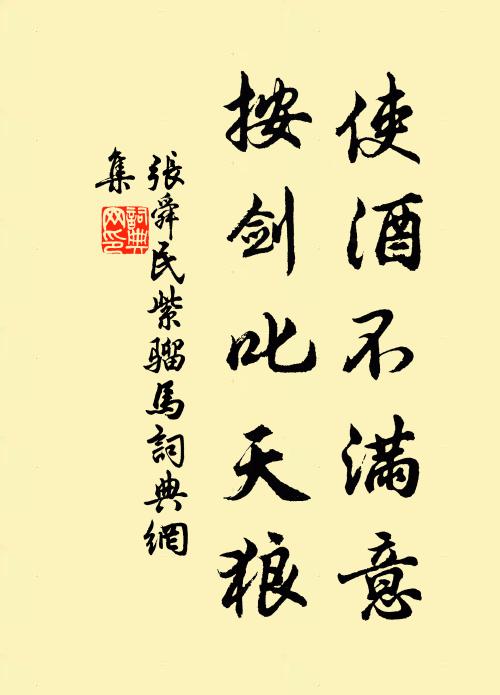 使酒不滿意
按劍叱天狼
張舜民紫騮馬詞典網
集
詞典
网印